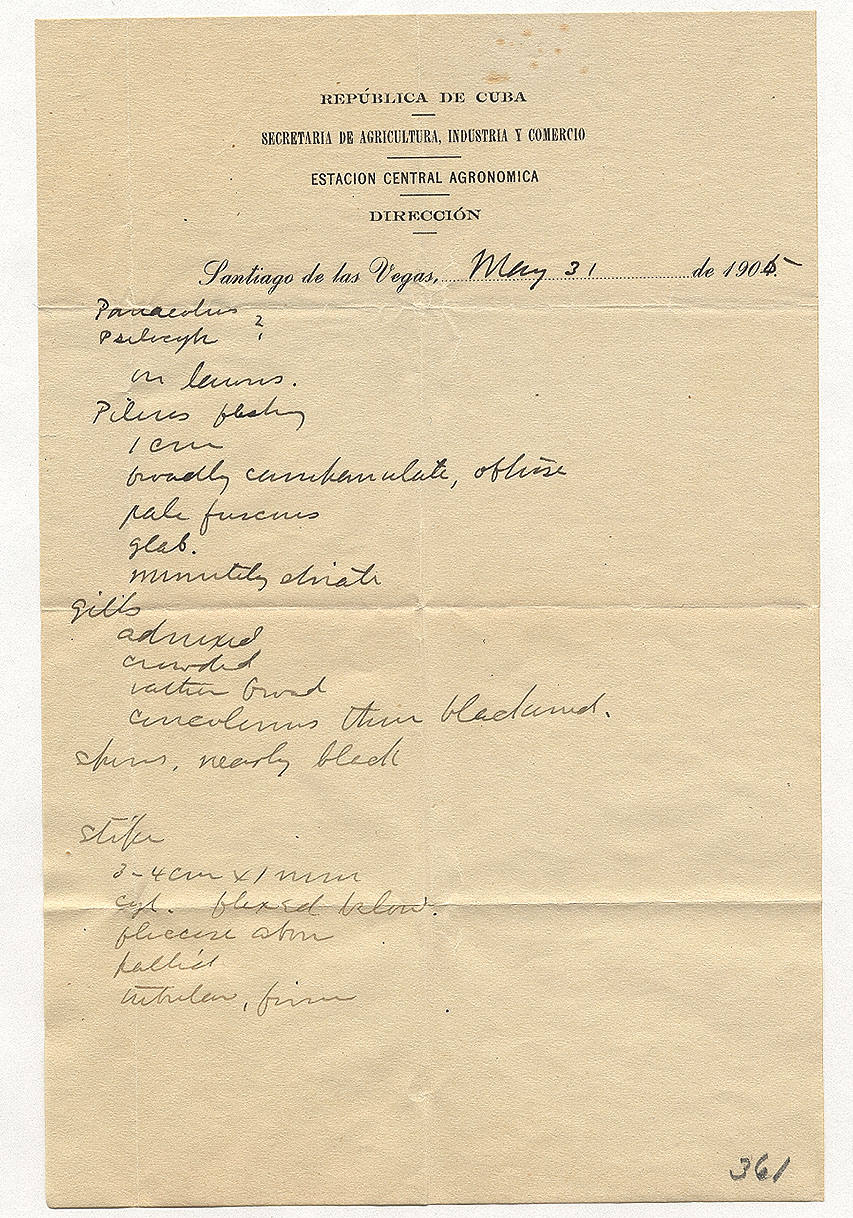 REPÚBLICA DE CUBA
SECRETARIA DE AGRICULTURA, INDUSTRIA Y COMERCIO
ESTACION CENTRAL AGRONOMICA
DIRECCIÓN
Santiago de las Vegas, May 31 de 1905
Panaeolus
Psilocybe ?
on lawns.
Pileus fleshy
1 cm
broadly campanulate, obtuse
pale fuscous
glab.
minutely striate
gills
adnexed
crowded
rather broad
then blackened.
spores, nearly black
stipe
3-4 cm x 1 mm
cyl. flexed below.
floccose above
pallid
tubular, firm
361